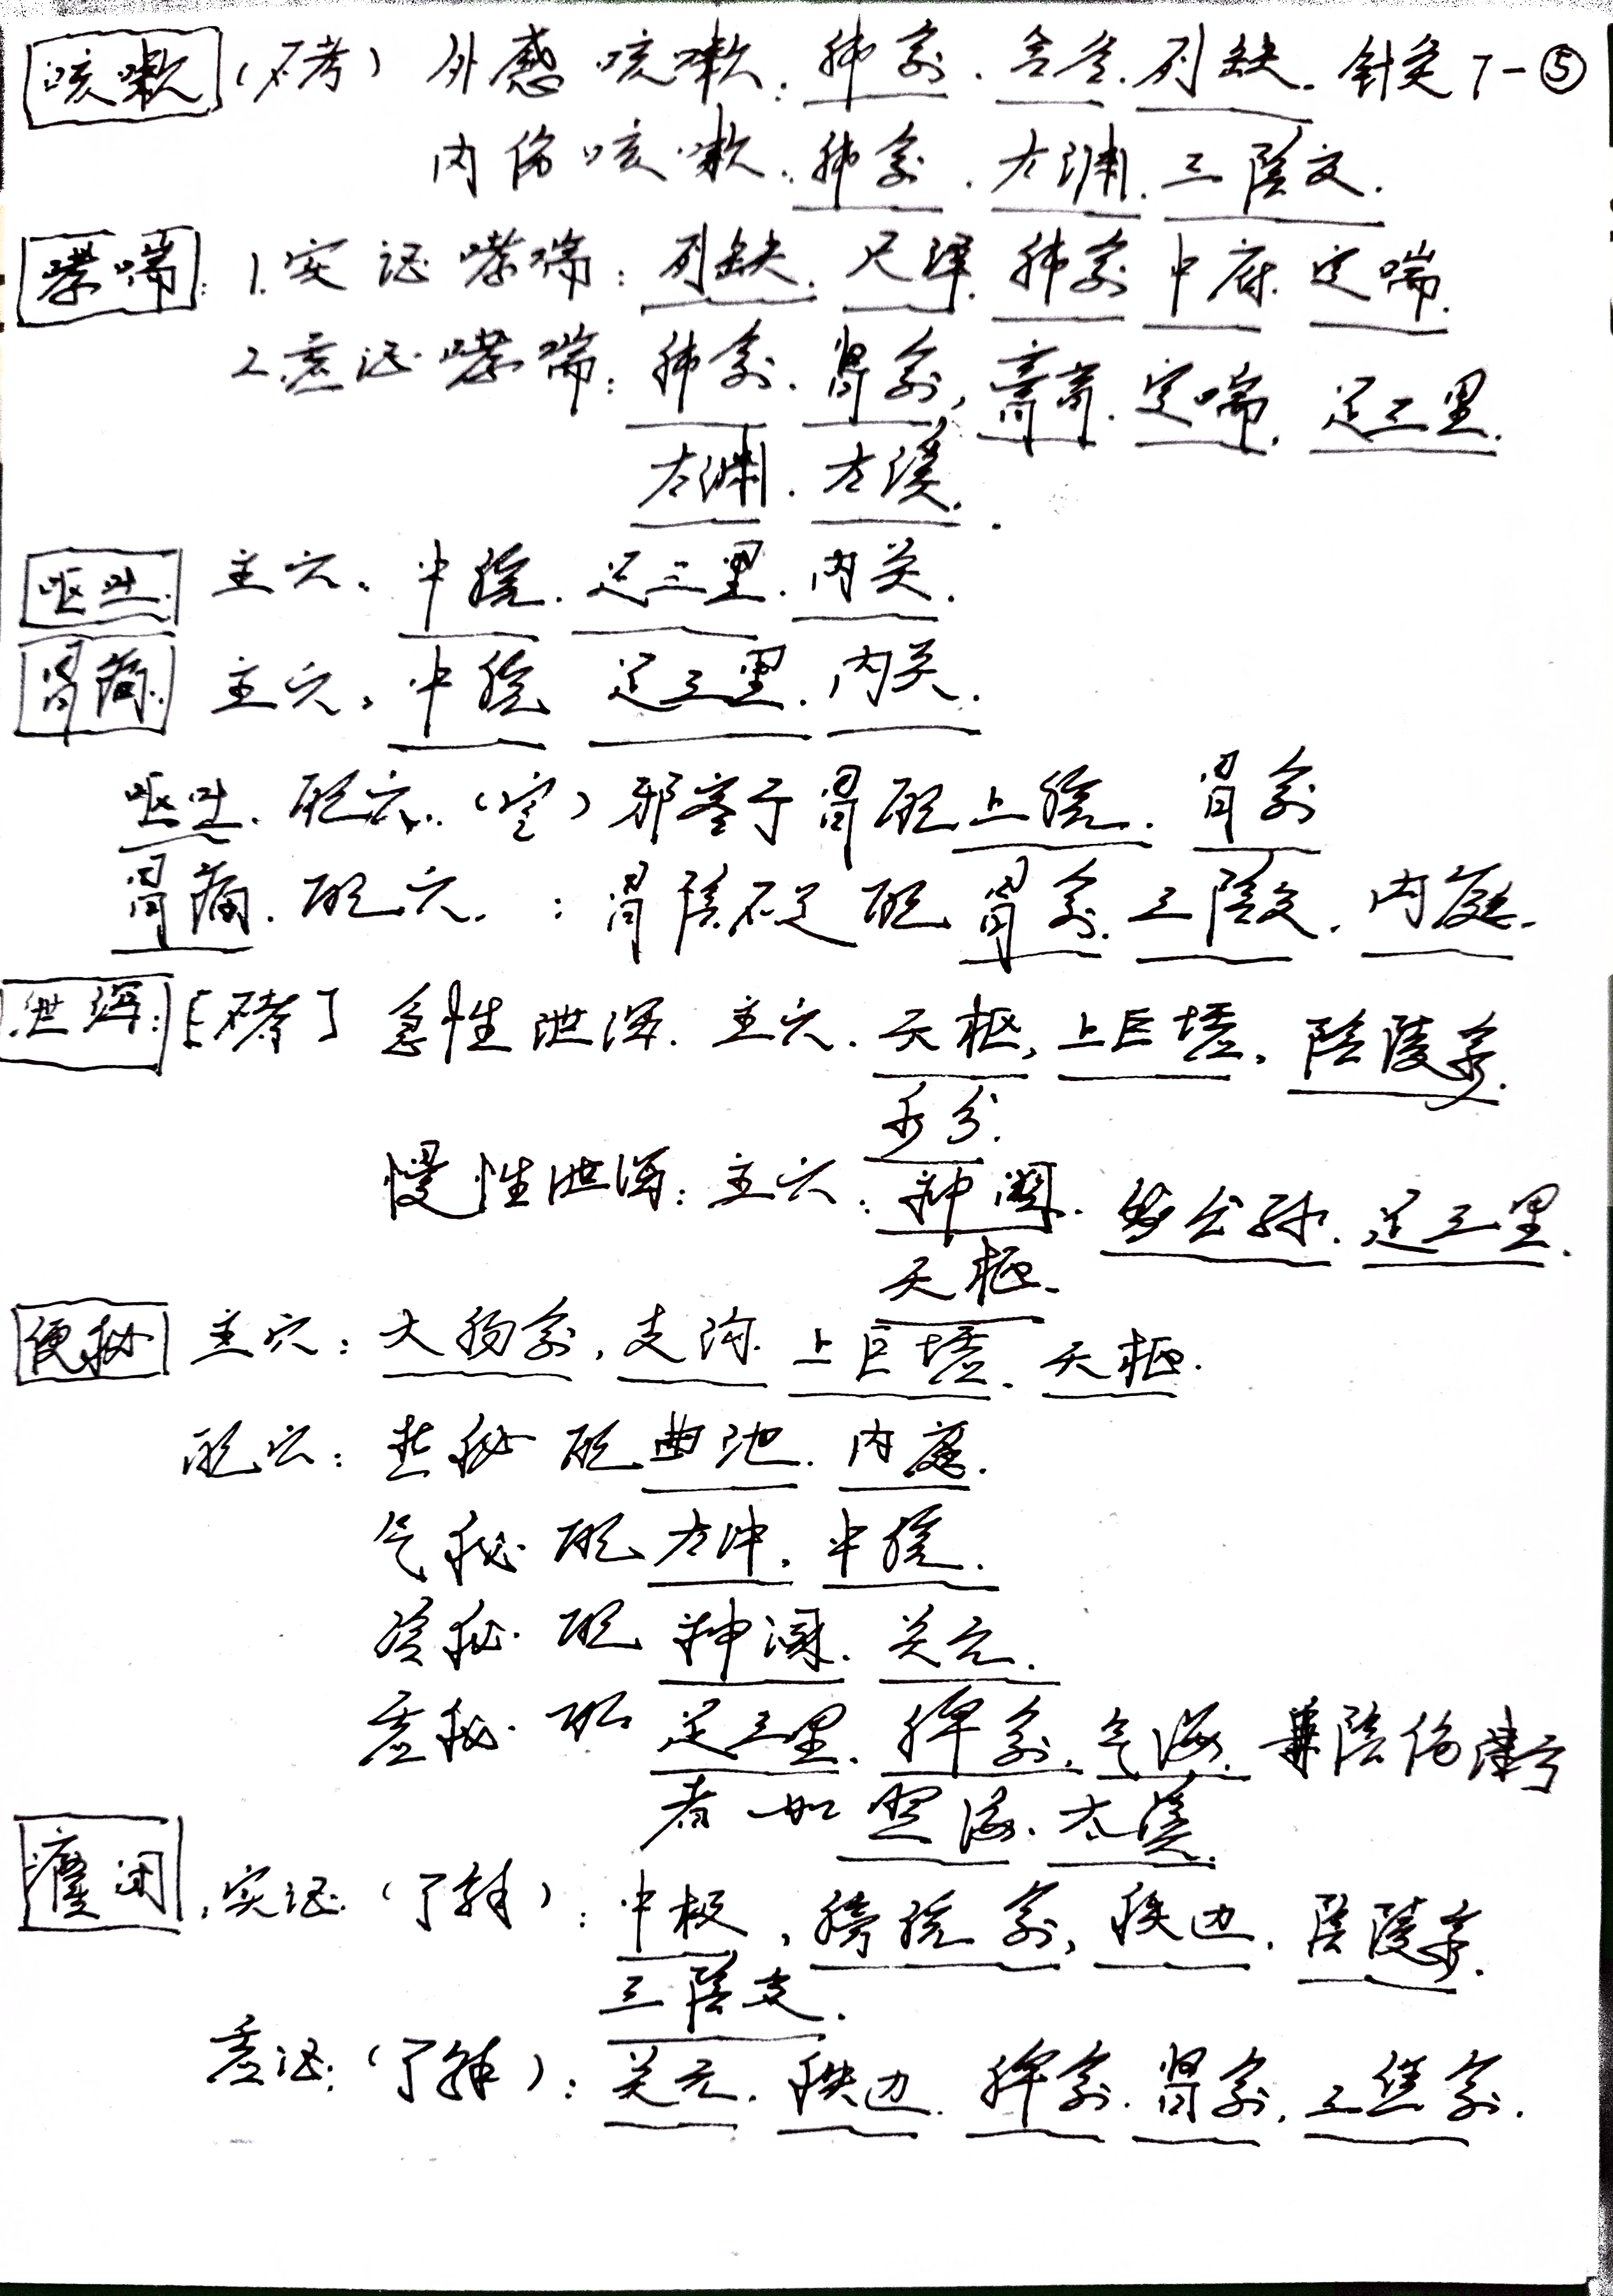 咳嗽 (不考) 外感咳嗽：肺俞.合谷.列缺. 针灸7-⑤
内伤咳嗽：肺俞.太渊.三阴交.
哮喘：1.实证哮喘：列缺.尺泽.肺俞 中府.定喘.
2.虚证哮喘：肺俞.肾俞，膏肓.定喘.足三里.
太渊.太溪.
呕吐. 主穴：中脘.足三里.内关.
胃痛. 主穴：中脘 足三里.内关.
呕吐.配穴：(实)邪客于胃配上脘.胃俞
胃痛.配穴.：胃阴不足配胃俞.三阴交.内庭.
泄泻：[不考]急性泄泻.主穴.天枢，上巨墟，阴陵泉.
水分.
慢性泄泻：主穴：神阙.公孙.足三里.
天枢.
便秘 主穴：大肠俞，支沟.上巨墟.天枢.
配穴：热秘配曲池.内庭.
气秘.配太冲.中脘.
冷秘.配神阙.关元.
虚秘.配足三里.脾俞.气海.兼阴伤津亏
者加照海.太溪.
癃闭，实证(了解)：中极，膀胱俞，秩边.阴陵泉.
三阴交.
虚证：(了解)：关元.秩边.脾俞.肾俞，三焦俞.